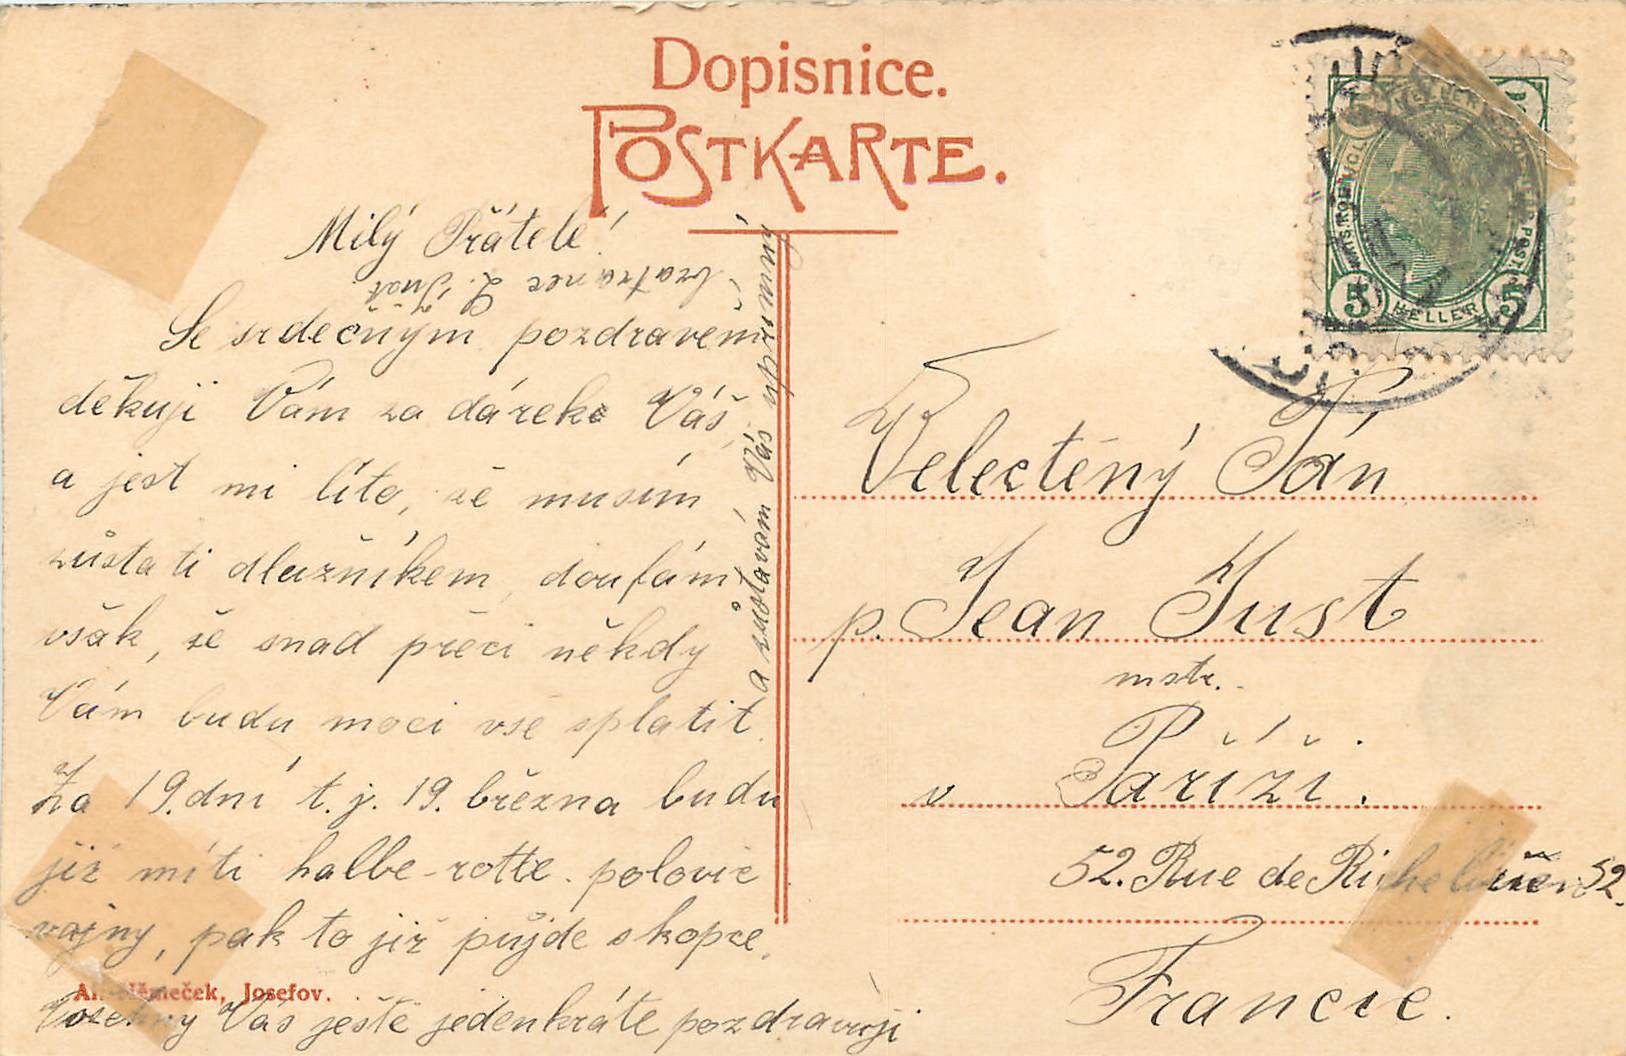 Dopisnice.
POSTKARTE.
Milý Přátelé!
Se srdečným pozdravem
děkuji Vám za dárek Váš,
a jest mi líto, že musím
zůstati dlužníkem, doufám
však, že snad přeci někdy
Vám budu moci vše splatit.
Za 19. dní t. j. 19. března budu
již míti halbe-rotte. polovic
vojny, pak to již půjde s kopce.
Všechny Vás ještě jedenkráte pozdravuji
a zůstavám Vás upřímný
bratranec L. Just
Němeček, Josefov.
5 HELLER 5
Velectěný Pán
p. Jean Just
mstr.
v Paříži.
52. Rue de Richelieu 52.
Francie.